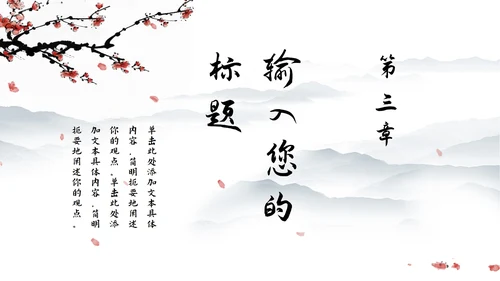 第三章
输入您的
标题
单击此处添加文本具体
内容，简明扼要地阐述
你的观点。单击此处添
加文本具体内容，简明
扼要地阐述你的观点。